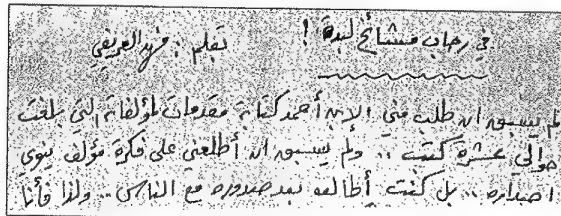 في رحاب مشائخ لبدة ! بقلم : فهد العريفي
لم يسبق ان طلب مني الابن أحمد كتابة مقدمات لمؤلفاته التي بلغت
حوالي عشرة كتب .. ولم يسبق ان أطلعني على فكرة مؤلف ينوي
اصداره .. بل كنت أطالعه بعد صدوره مع الناس .. ولذا فأنا